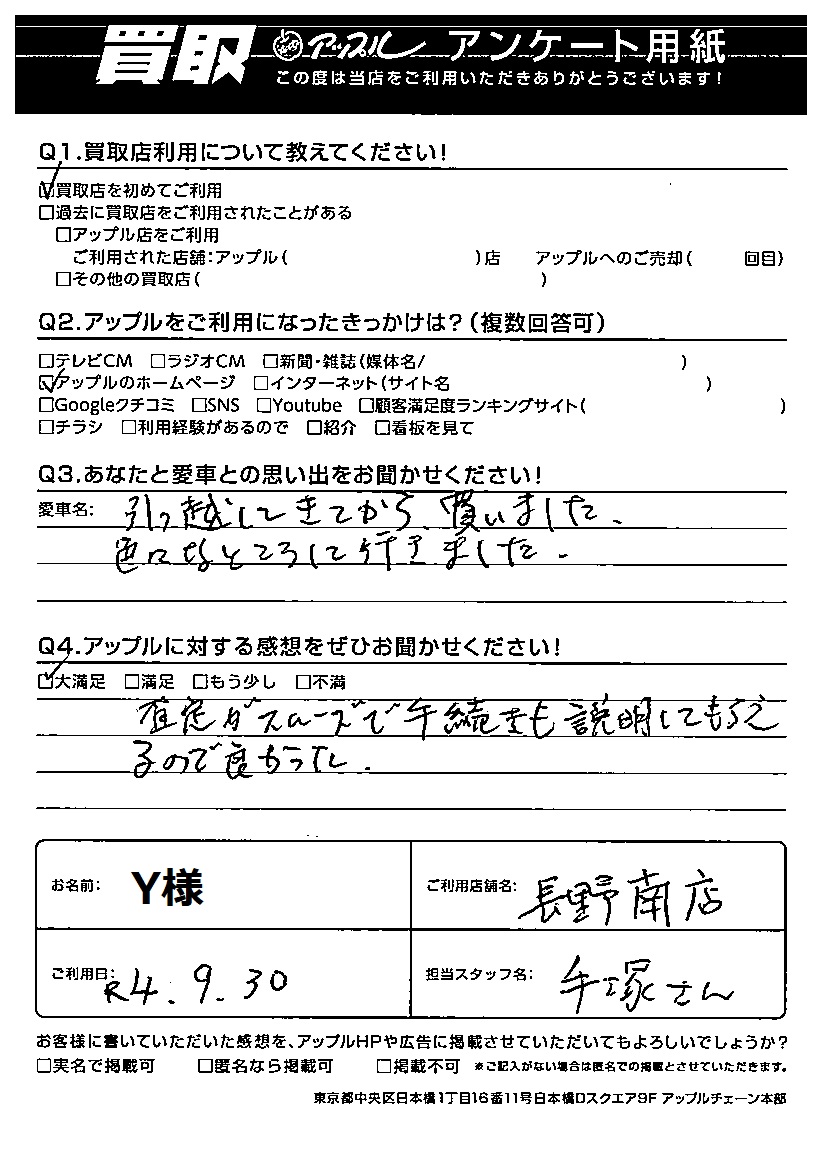 買取 アップル アンケート用紙
この度は当店をご利用いただきありがとうございます!
Q1.買取店利用について教えてください!
☑買取店を初めてご利用
□過去に買取店をご利用されたことがある
□アップル店をご利用
ご利用された店舗:アップル( )店 アップルへのご売却( 回目)
□その他の買取店( )
Q2.アップルをご利用になったきっかけは?(複数回答可)
□テレビCM □ラジオCM □新聞・雑誌(媒体名/ )
☑アップルのホームページ □インターネット(サイト名 )
□Googleクチコミ □SNS □Youtube □顧客満足度ランキングサイト( )
□チラシ □利用経験があるので □紹介 □看板を見て
Q3.あなたと愛車との思い出をお聞かせください!
愛車名: 引っ越してきてから、買いました、
色になところに行きました.
Q4.アップルに対する感想をぜひお聞かせください!
☑大満足 □満足 □もう少し □不満
査定がスムーズで手続きも説明してもらえ
るので良かった.
お名前: Y様 ご利用店舗名: 長野南店
ご利用日: R4.9.30 担当スタッフ名: 手塚さん
お客様に書いていただいた感想を、アップルHPや広告に掲載させていただいてもよろしいでしょうか?
□実名で掲載可 □匿名なら掲載可 □掲載不可 ※ご記入がない場合は匿名での掲載とさせていただきます。
東京都中央区日本橋1丁目16番11号日本橋Dスクエア9F アップルチェーン本部